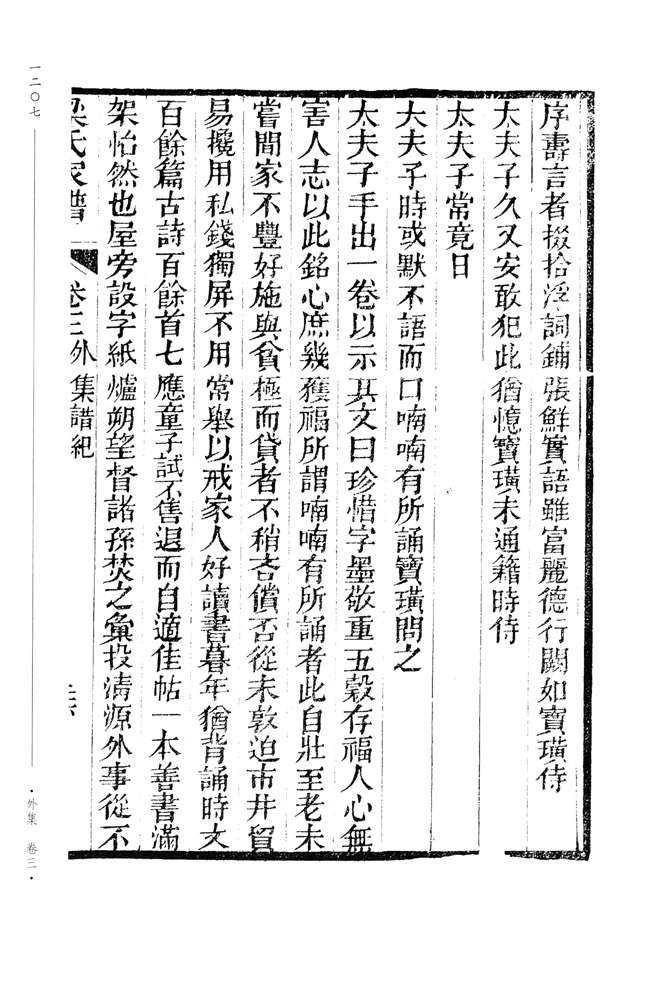 序壽言者掇拾浮詞鋪張鮮實語雖富麗德行闕如寶璜侍
太夫子久又安敢犯此猶憶寶璜未通籍時侍
太夫子常竟日
大夫子時或默不語而口喃喃有所誦寶璜問之
太夫子手出一卷以示其文曰珍惜字墨敬重五穀存福人心無
害人志以此銘心庶幾獲福所謂喃喃有所誦者此自壯至老未
嘗間家不豐好施與貧極而貸者不稍吝償否從未敦迫市井貿
易攙用私錢獨屏不用常舉以戒家人好讀書暮年猶背誦時文
百餘篇古詩百餘首七應童子試不售退而自適佳帖一本善書滿
架怡然也屋旁設字紙爐朔望督諸孫焚之彙投清源外事從不
梁氏家譜 卷三外集譜紀
一二〇七
·外集 卷三·